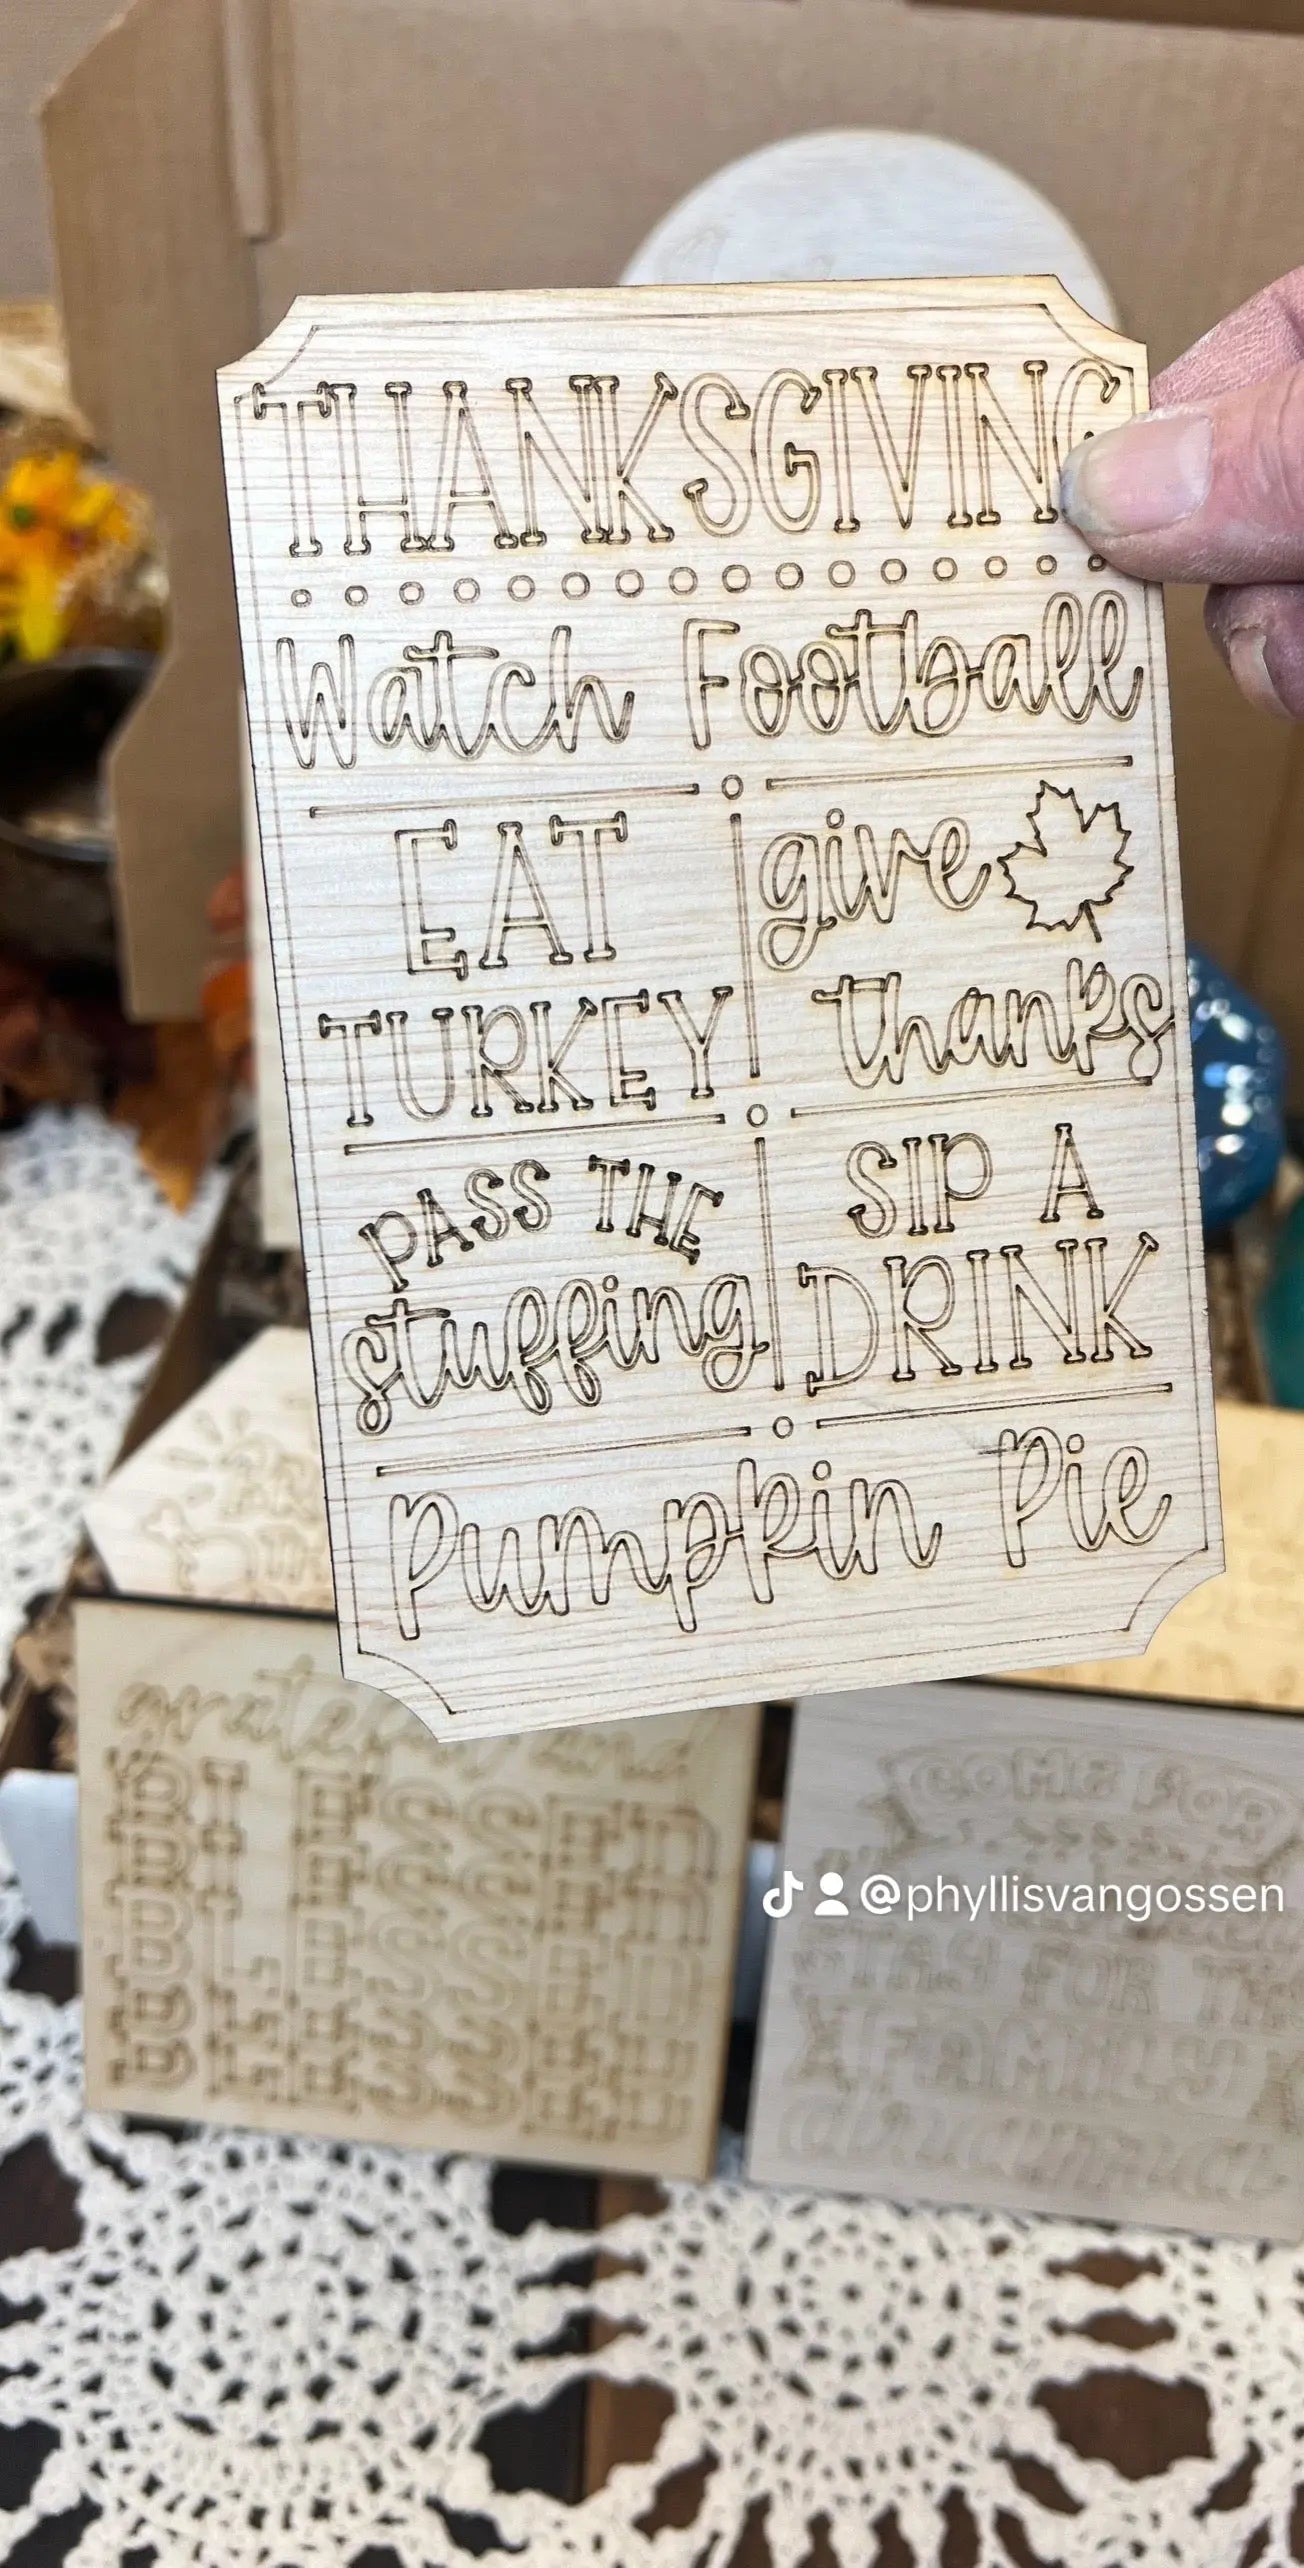 THANKSGIVING
Watch Football
EAT
TURKEY
give
thanks
PASS THE
stuffing
SIP A
DRINK
Pumpkin Pie
grateful and
BLESSED
COME FOR
@phyllisvangossen
STAY FOR THE
FAMILY